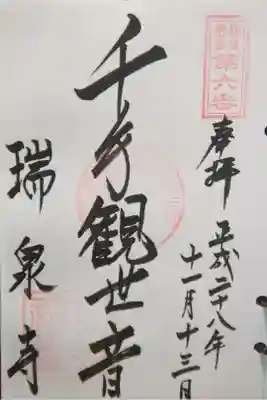 第六番
奉拝
平成二十八年
十一月十三日
千手観世音
瑞泉寺